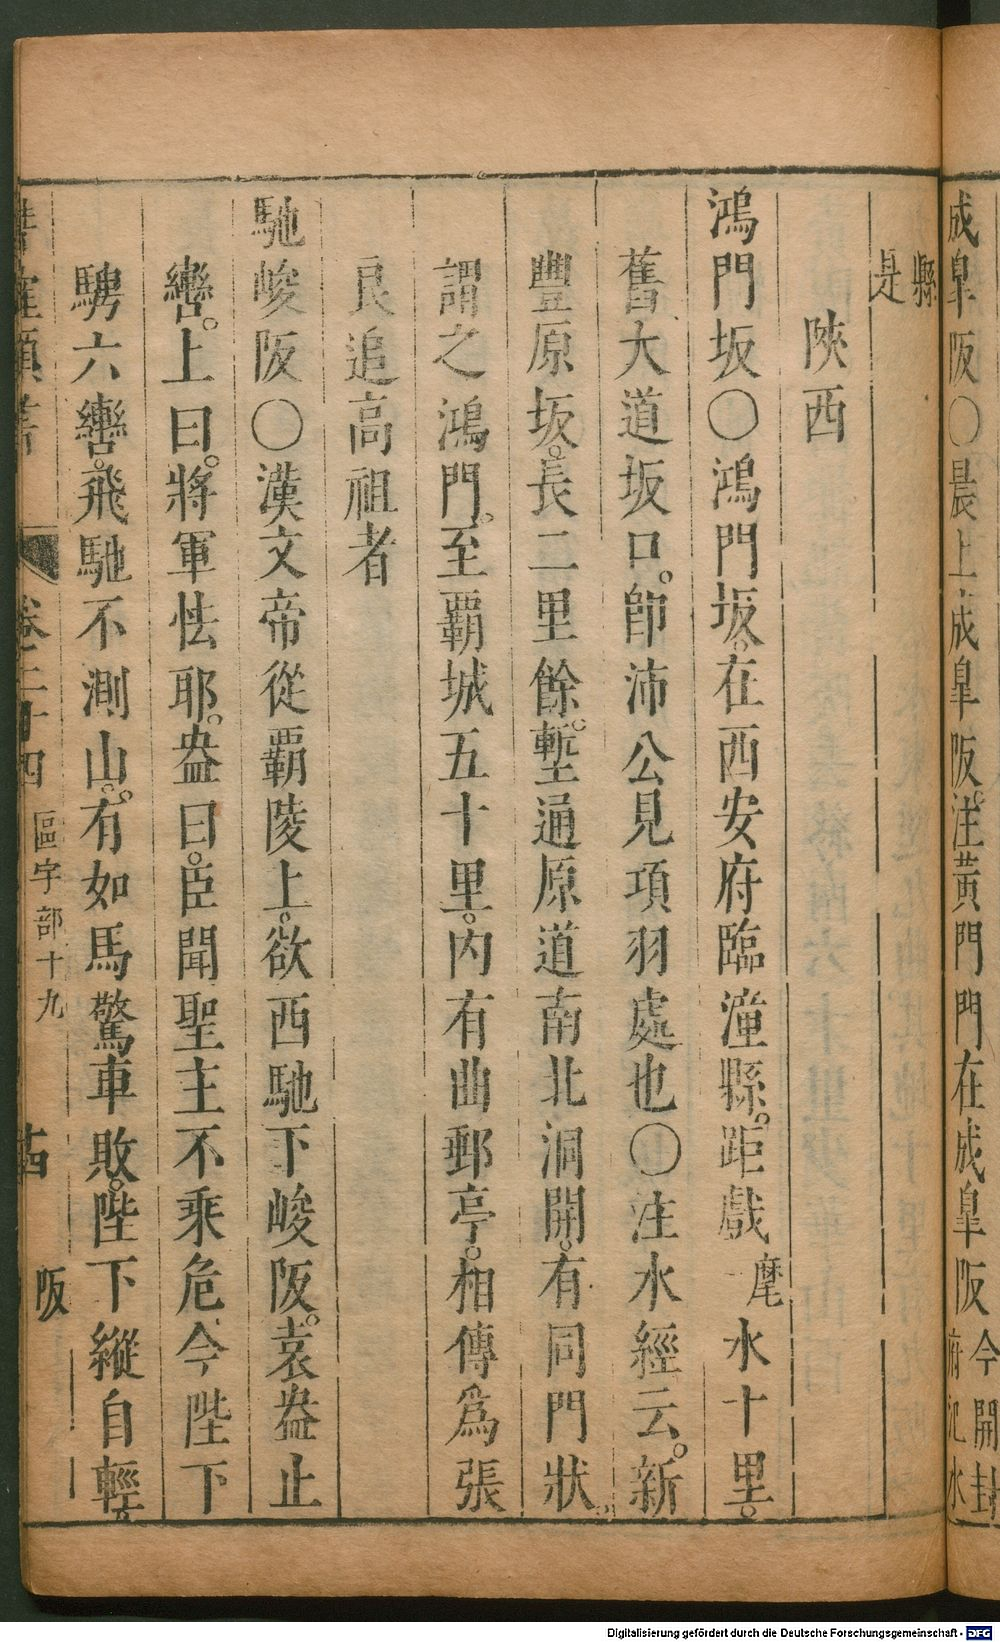 成皐阪〇晨上成皐阪。注黃門門在成皐阪今開封府汜水
縣是
陝西
鴻門坂〇鴻門坂。在西安府臨潼縣。距戲麾水十里。
舊大道坂口。卽沛公見項羽處也〇注水經云。新
豐原坂。長二里餘。塹通原道南北洞開。有同門狀。
謂之鴻門。至覇城五十里。內有曲郵亭。相傳爲張
良追高祖者
馳峻阪〇漢文帝從覇陵上。欲西馳下峻阪。袁盎止
轡。上曰。將軍怯耶。盎曰。臣聞聖主不乘危今陛下
騁六轡。飛馳不測山。有如馬驚車敗。陛下縱自輕
卷二十四 區宇部十九 阪
Digitalisierung gefördert durch die Deutsche Forschungsgemeinschaft - DFG